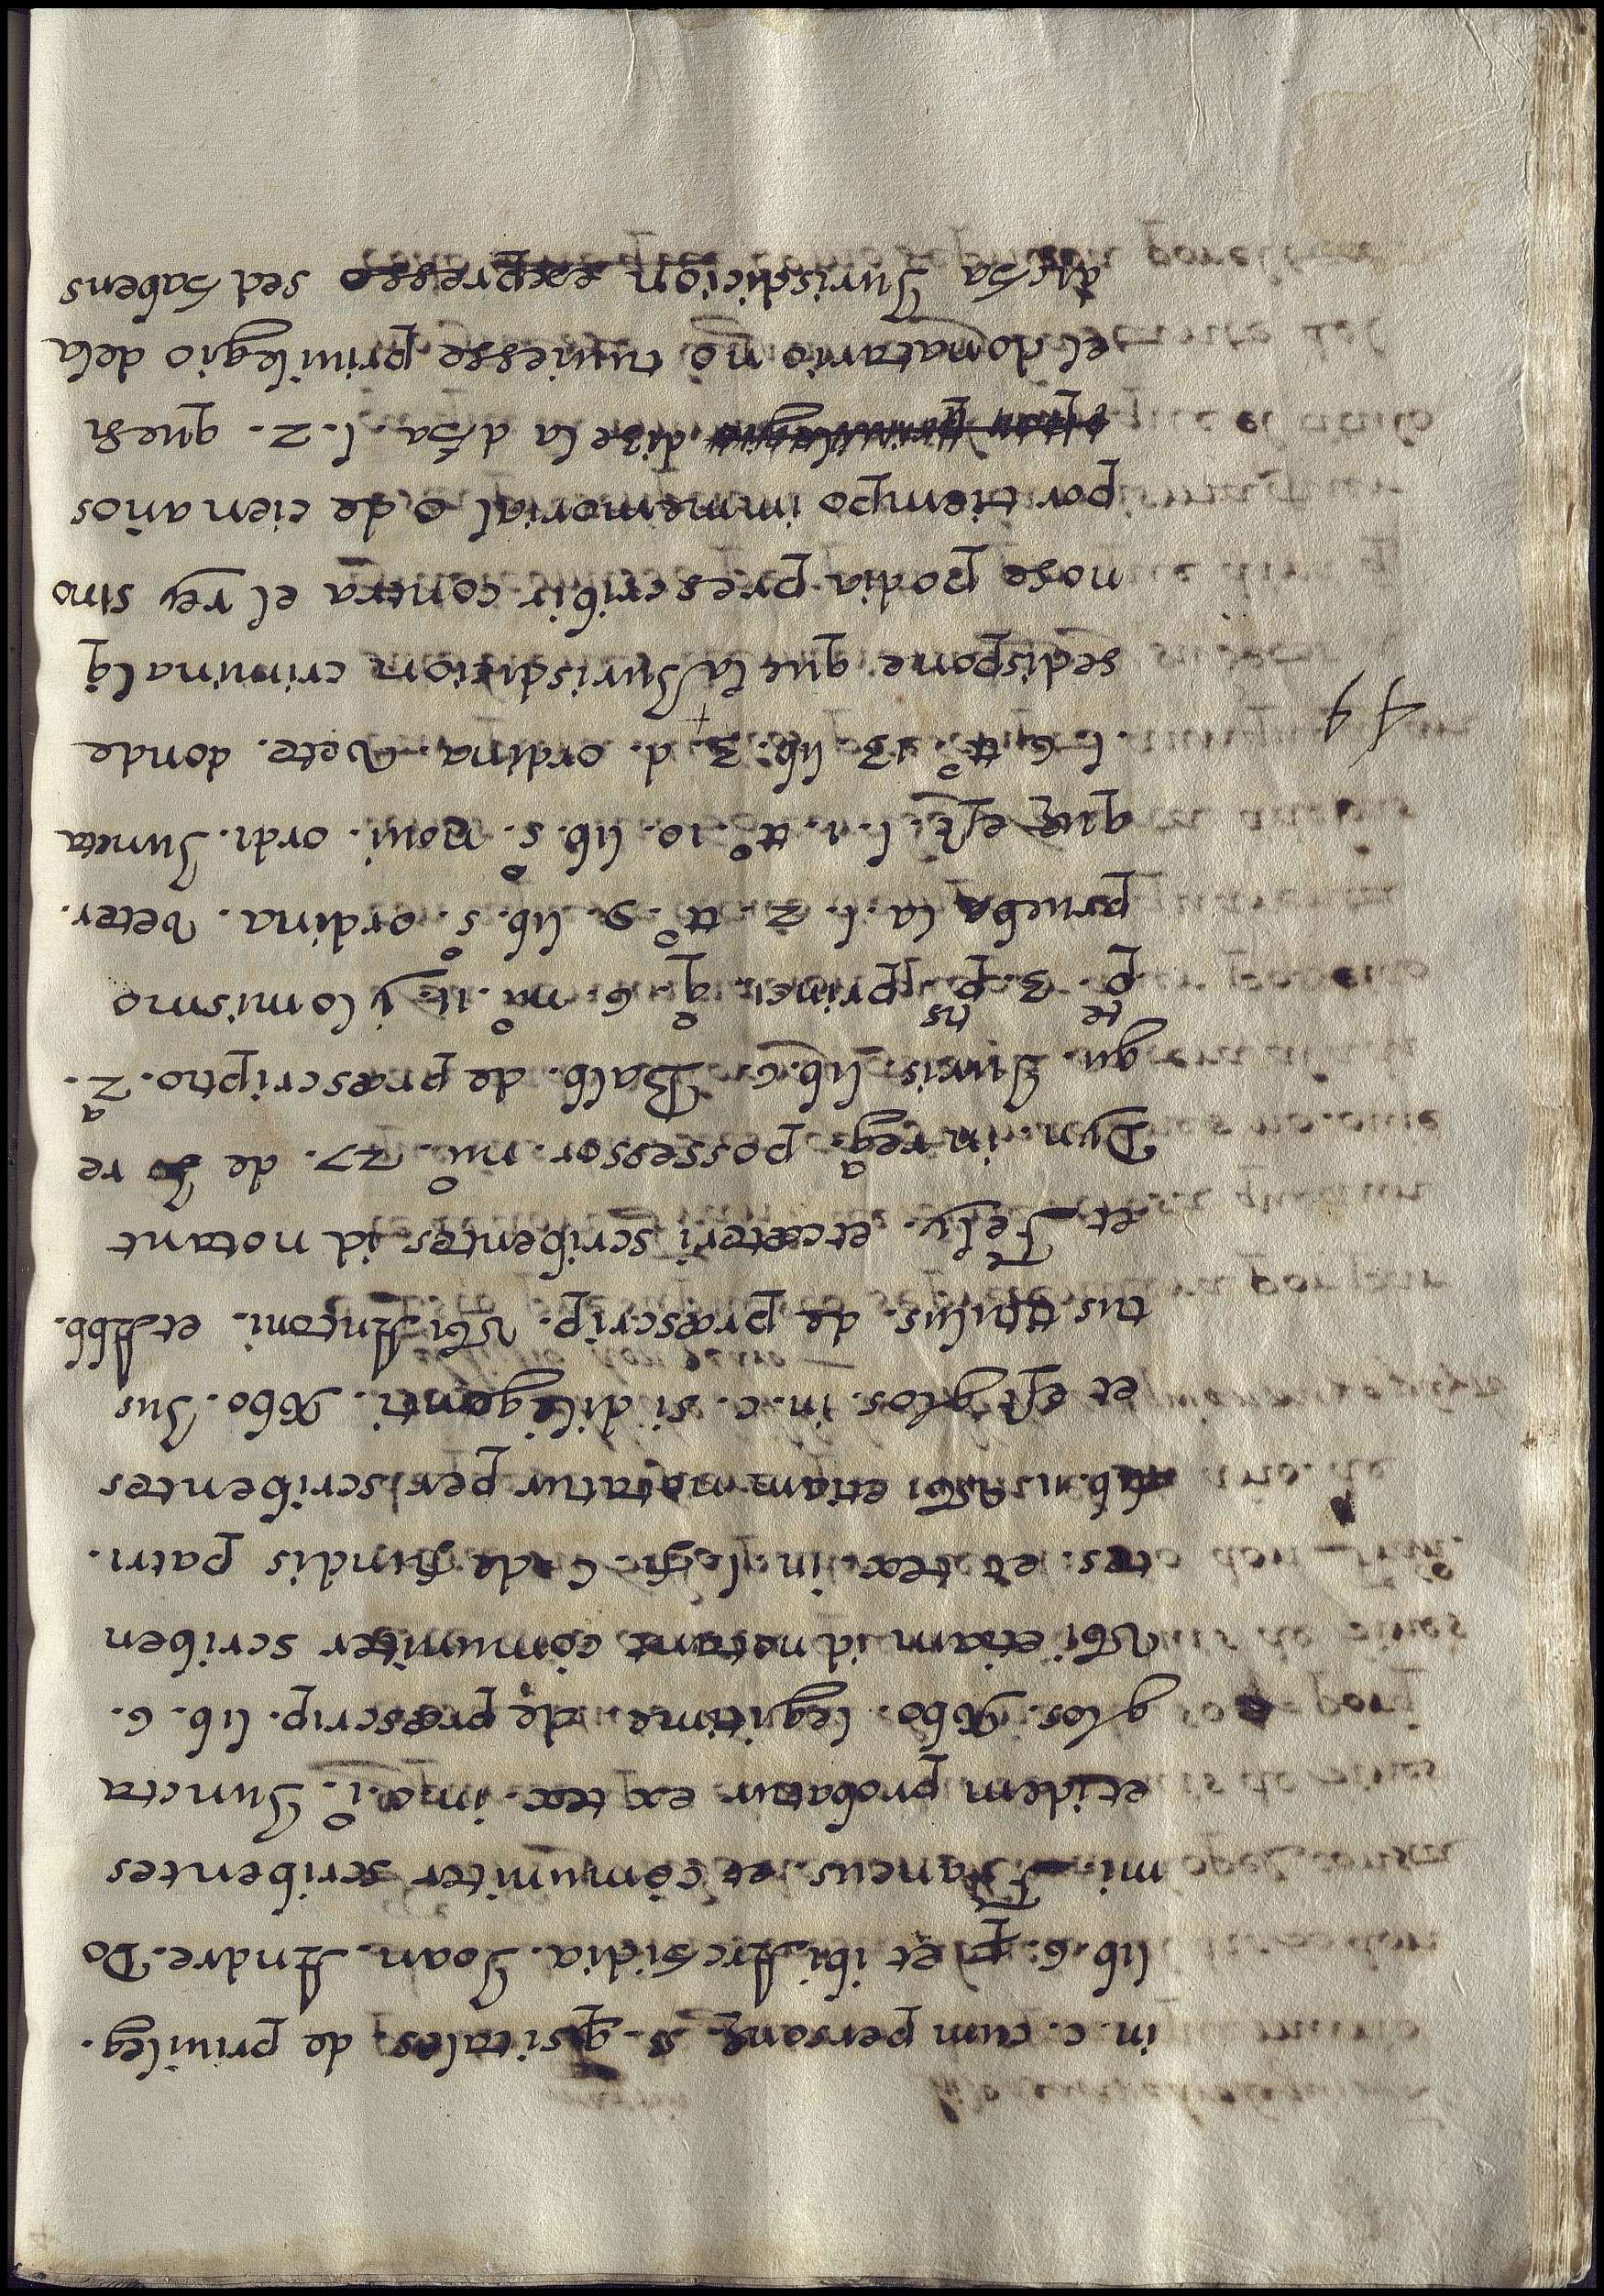 in. c. cum personę. §. q̃ si tales, de priuileg.
lib. 6. et ibi Archidia. Joan. Andre. Do
mi. Francus. et cõmuniter scribentes
et idem probatur ex tex. in c. i.º Juncta
glos. Vbo. legitime. de præscrip. lib. 6.
Vbi etiam id notant cõmuniter scriben
tes. et tex. in l. fi. C. de fundis patri.
lib. 11. Vbi etiam notatur per scribentes
et est glos. in. c. si diligenti. Vbo. Jus
tus titulus. de præscrip. Vbi Antoni. et Abb.
et Fely. et cæteri scribentes id notant
Dyn. in regª. possessor. nuº. 77. de re
gu. Juris. lib. 6. Balb. de præscriptio. 2.ª
pte. 3. pptis princi. qº. 6. nuº. 11. y lo mismo
prueba la. l. 2. ttº. 9. lib. 5.º ordina. Veter.
quę est. l. 1. ttº. 10. lib. 5.º noui. ordi. Juncta
l. 6. ttº. 13. lib. 3. d. ordina. Vete. donde
se dispone que la Jurisdicion criminal q̃
no se podia prescribir contra el rey sino
por tiempo immemorial o de cien años
dize la dha. l. 2. que si
el donatario no tuuiesse priuilegio de la
dicha Jurisdicion expresso sed habens